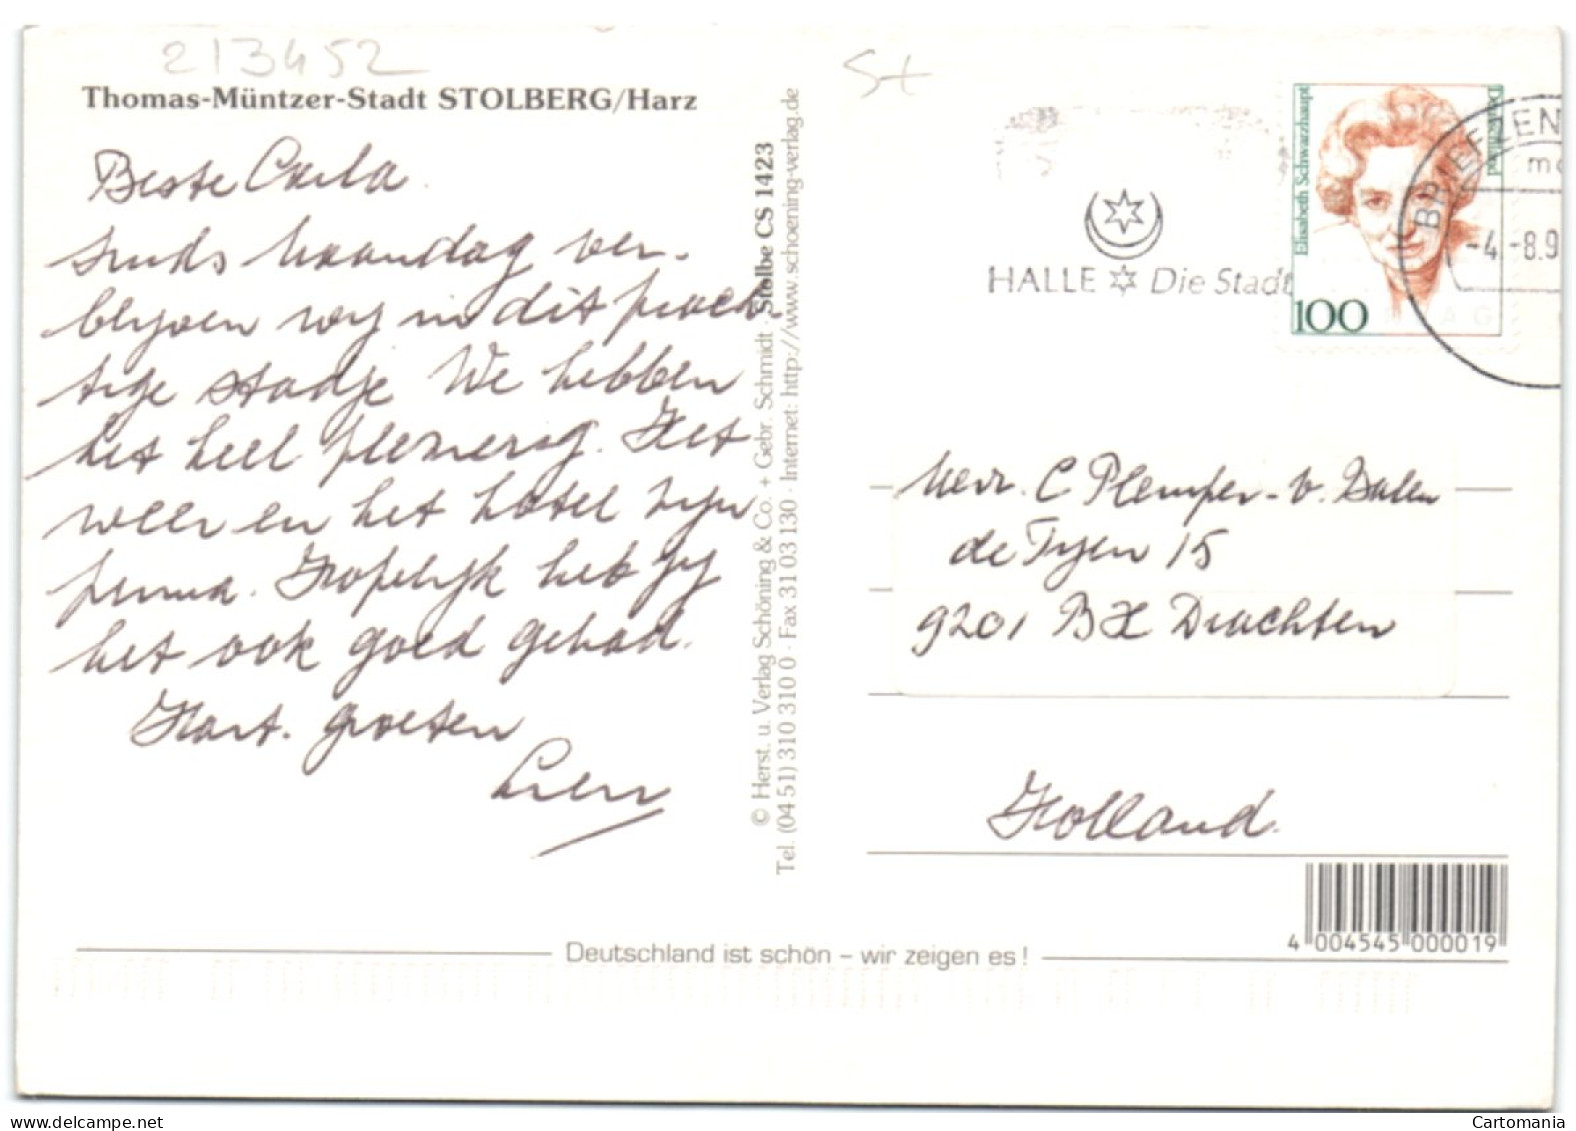 213452
St
Thomas-Müntzer-Stadt STOLBERG/Harz
Beste Carla.
Sinds Maandag ver-
blijven wij in dit prach-
tige stadje We hebben
het heel plezierig. Het
weer en het hotel zijn
prima. Hopelijk heb jij
het ook goed gehad.
Hart. groeten
Lien
© Herst. u. Verlag Schöning & Co. + Gebr. Schmidt · Stolbe CS 1423
Tel. (04 51) 310 310 0 · Fax 31 03 130 · Internet: http://www.schoening-verlag.de
HALLE Die Stadt
Elisabeth Schwarzhaupt
Deutschland
100
BRIEFZEN
-4.-8.9
Mevr. C Plemper-v. Dalen
de Tijen 15
9201 BX Drachten
Holland.
4 004545 000019
Deutschland ist schön – wir zeigen es !
Cartomania